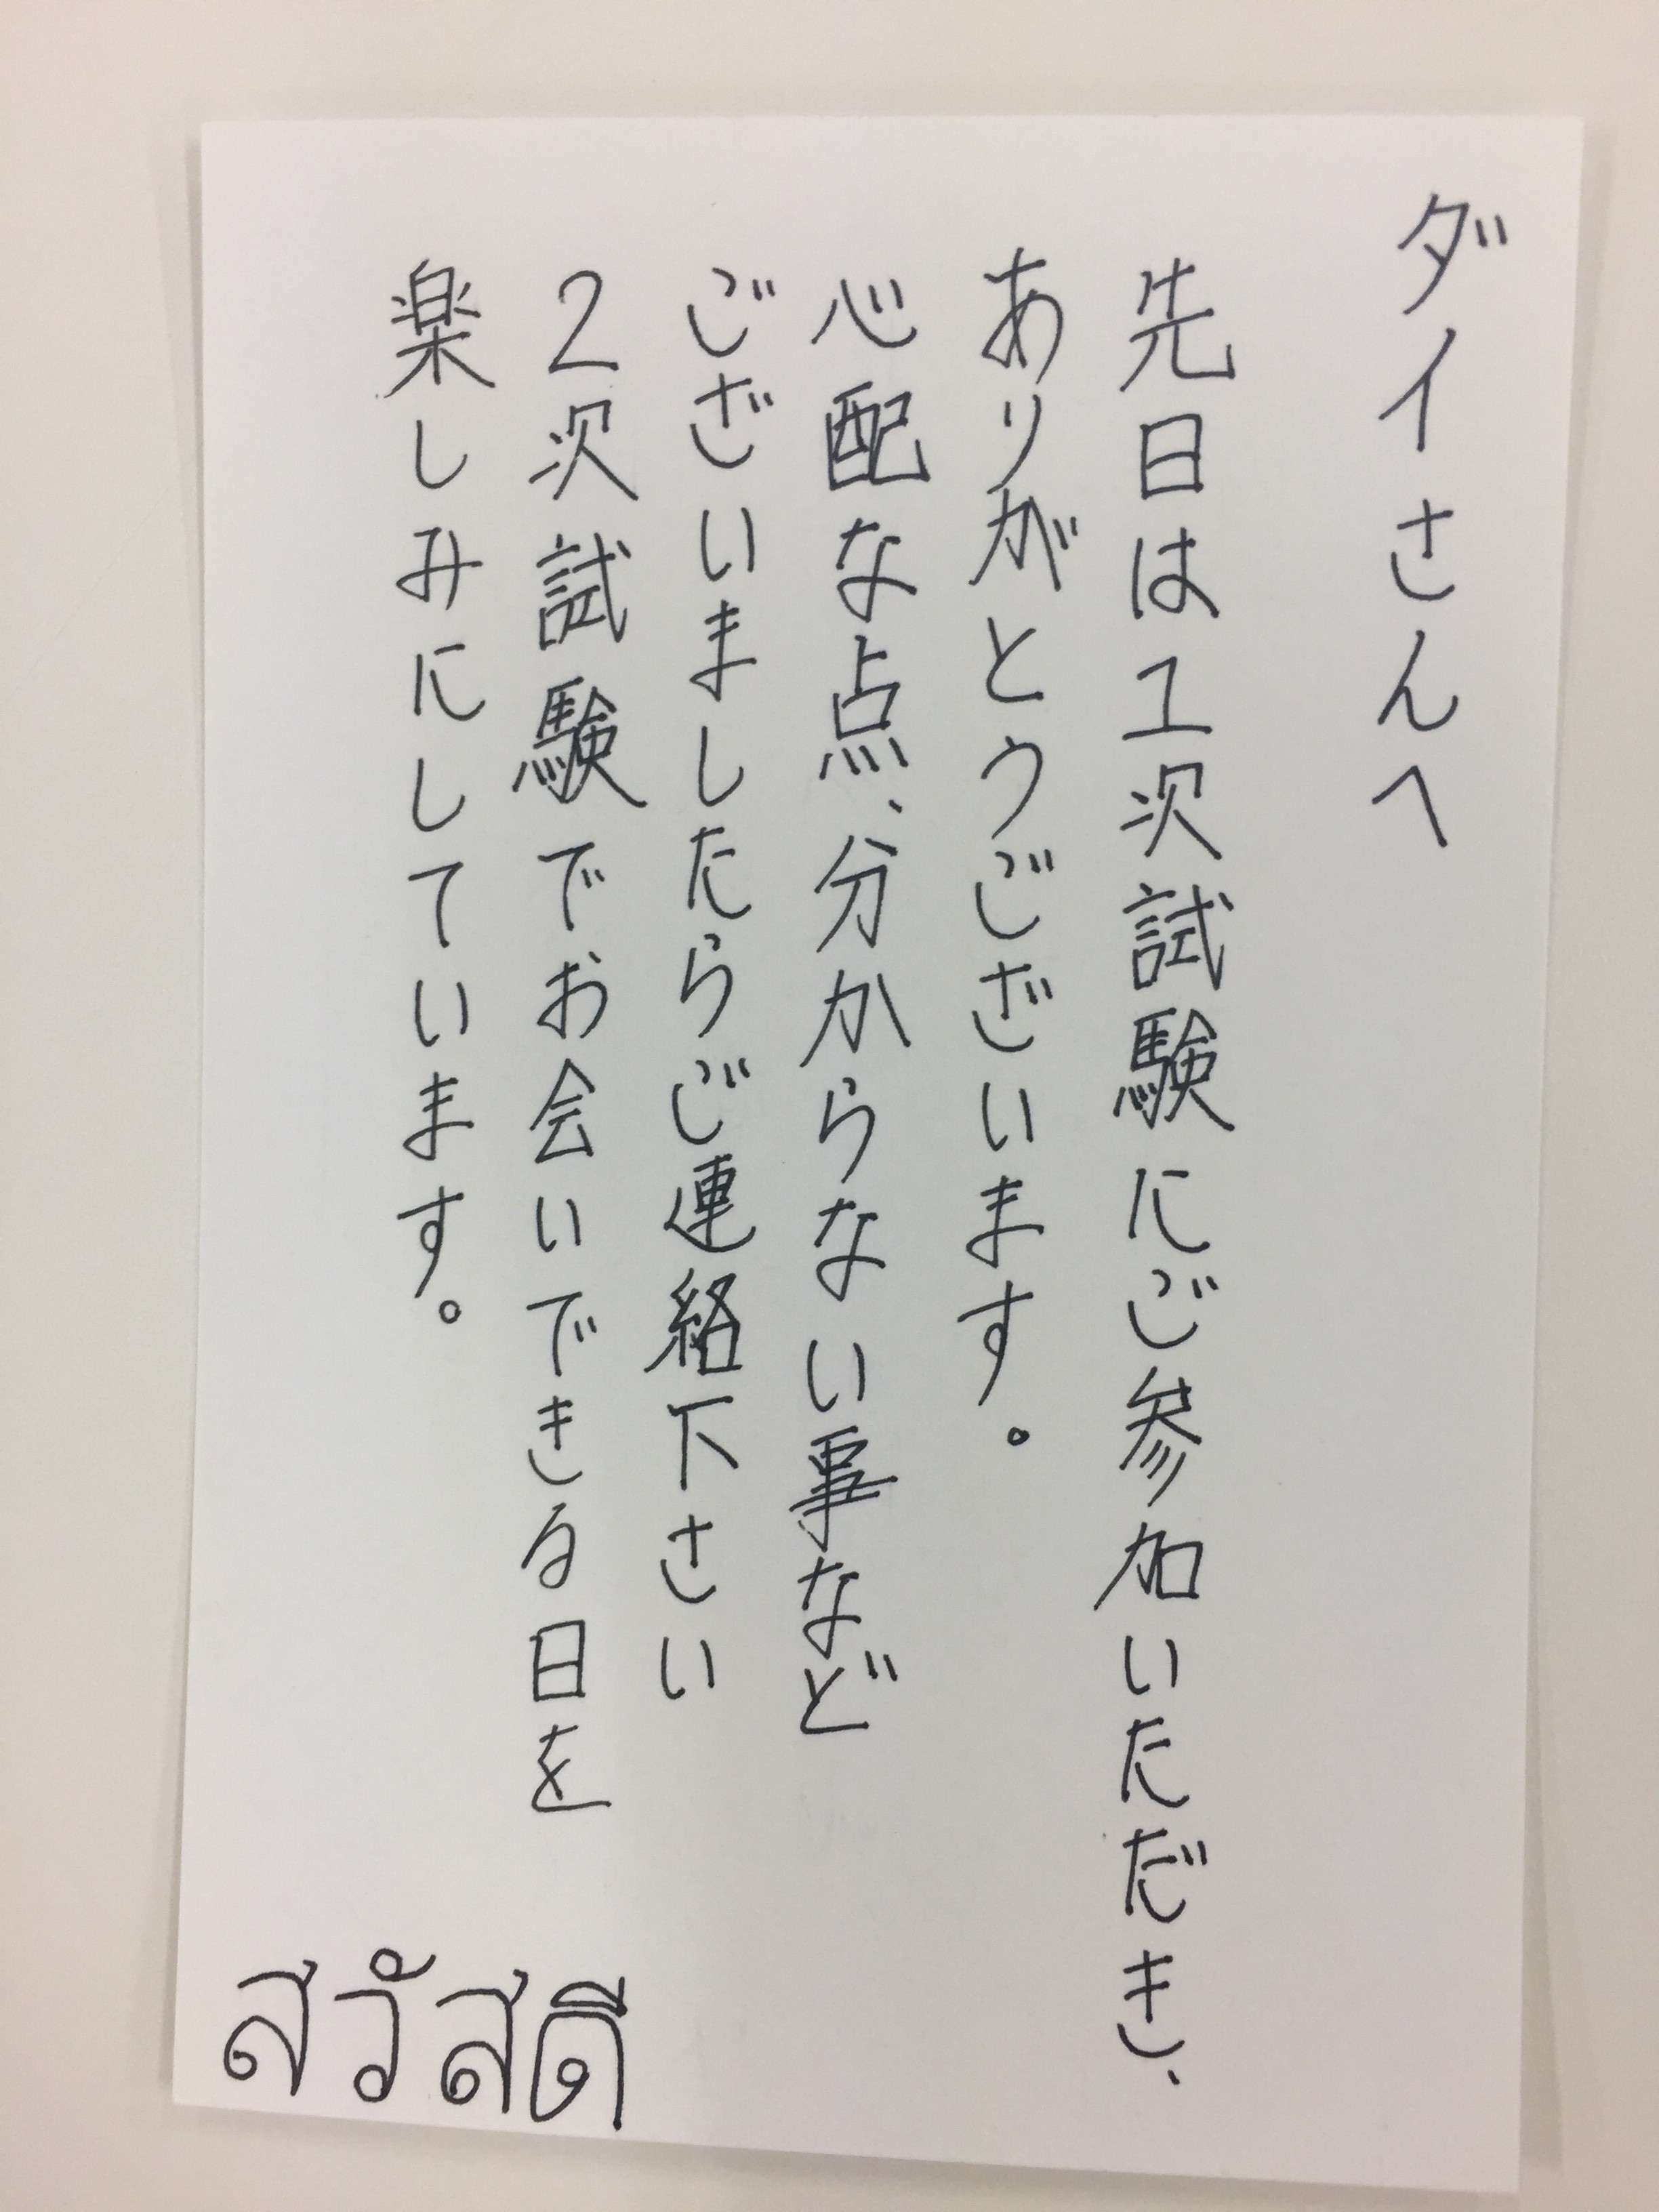 ダイさんへ
先日は1次試験にご参加いただき、
ありがとうございます。
心配な点、分からない事など
ございましたらご連絡下さい
2次試験でお会いできる日を
楽しみにしています。
สวัสดี